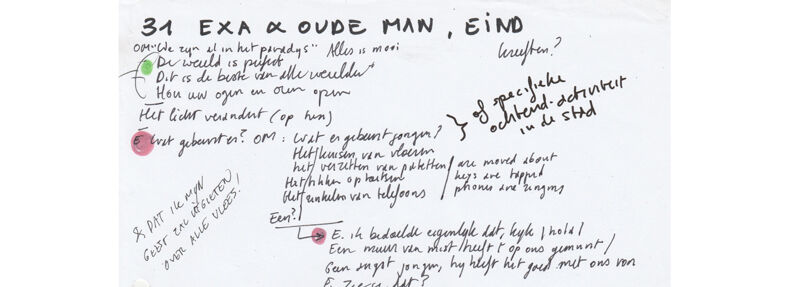 31 EXA & OUDE MAN, EIND
OM "We zijn al in het paradijs" Alles is mooi
De wereld is perfect
Dit is de beste van alle werelden
Hou uw ogen en oren open
Het licht verandert (op hen)
E Wat gebeurt er? OM: Wat er gebeurt jongen?
of specifieke
ochtend-activiteit
in de stad
Het kuisen van vloeren
het verzetten van paketten / are moved about
Het tikken op toetsen / keys are tapped
Het rinkelen van telefoons / phones are ringing
Een?
& DAT IK MIJN
GEEST ZAL UITGIETEN
OVER ALLE VLEES!
E. ik bedoelde eigenlijk dat, kijk / hola /
Een muur van mist / heeft 't op ons gemunt /
Geen angst jongen, hij heeft het goed met ons van